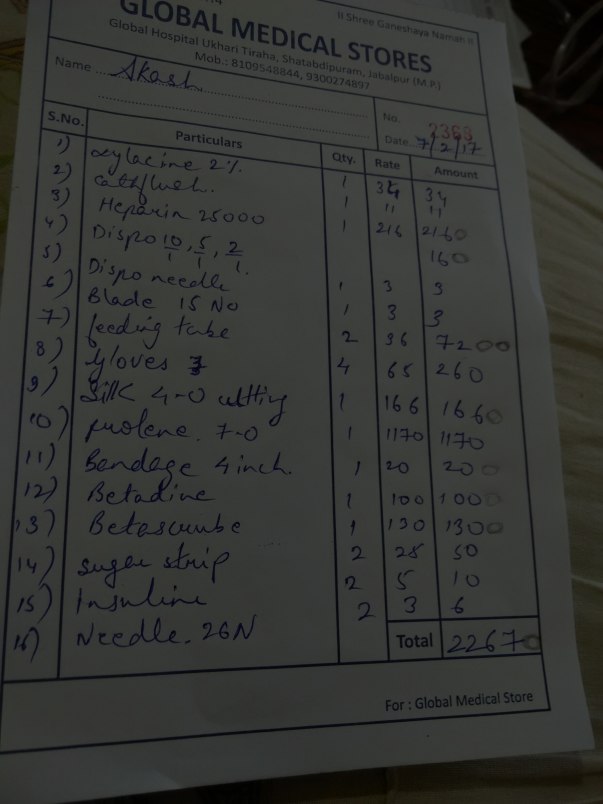 ॥ Shree Ganeshaya Namah ॥
GLOBAL MEDICAL STORES
Global Hospital Ukhari Tiraha, Shatabdipuram, Jabalpur (M.P.)
Mob.: 8109548844, 9300274897
Name Akash
No. 2369
Date 7/2/17
S.No. Particulars Qty. Rate Amount
1) xylacine 2% 1 34 34
2) Cathflush. 1 11 11
3) Heparin 25000 1 216 2160
4) Dispo 10/1, 5/1, 2/1. 160
5) Dispo needle 1 3 3
6) Blade 15 No 1 3 3
7) feeding tube 2 36 7200
8) gloves 7 4 65 260
9) Silk 4-0 cutting 1 166 1660
10) prolene. 7-0 1 1170 1170
11) Bandage 4 inch. 1 20 200
12) Betadine 1 100 1000
13) Betascrube 1 130 1300
14) suger strip 2 25 50
15) Insuline 2 5 10
16) Needle. 26N 2 3 6
Total 22670
For : Global Medical Store